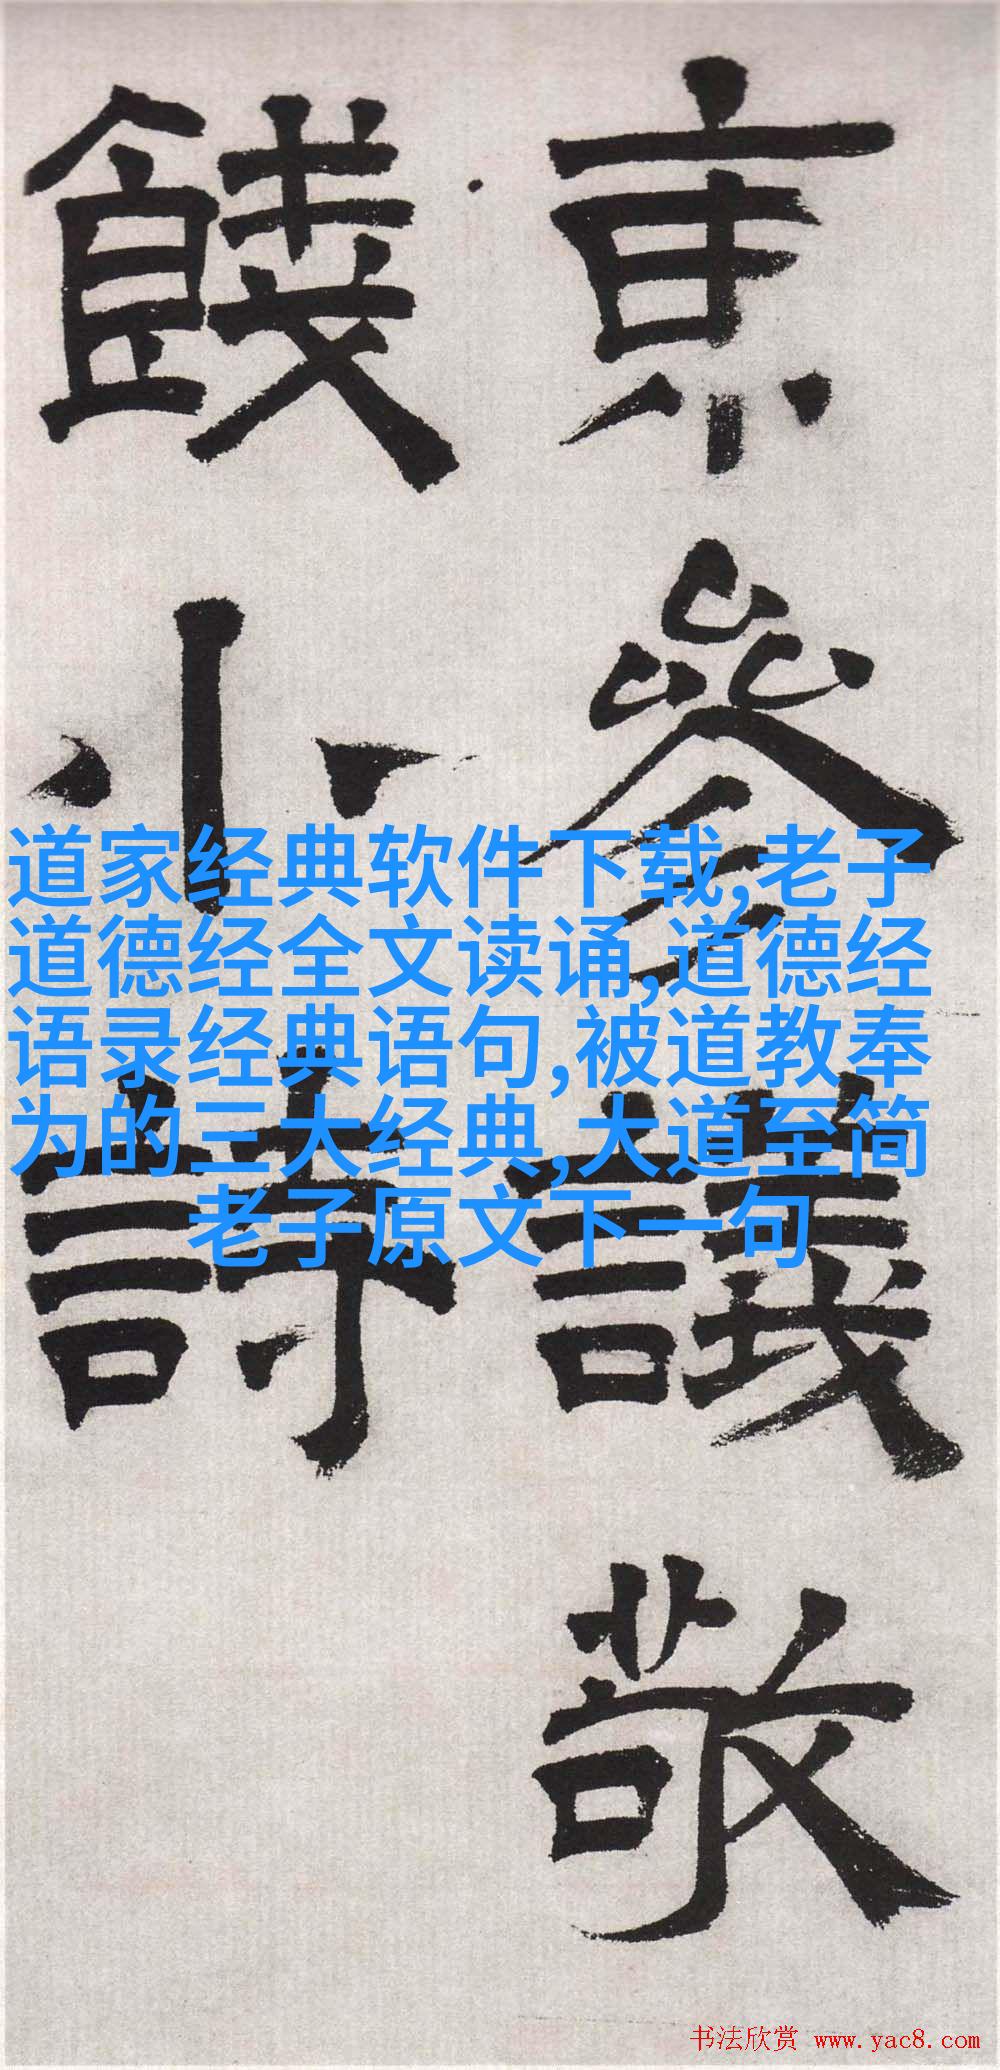 亰參議敬
餞小詩
道家经典软件下载,老子
道德经全文读诵,道德经
语录经典语句,被道教奉
为的三大经典,大道至简
老子原文下一句
书法欣赏 www.yac8.com